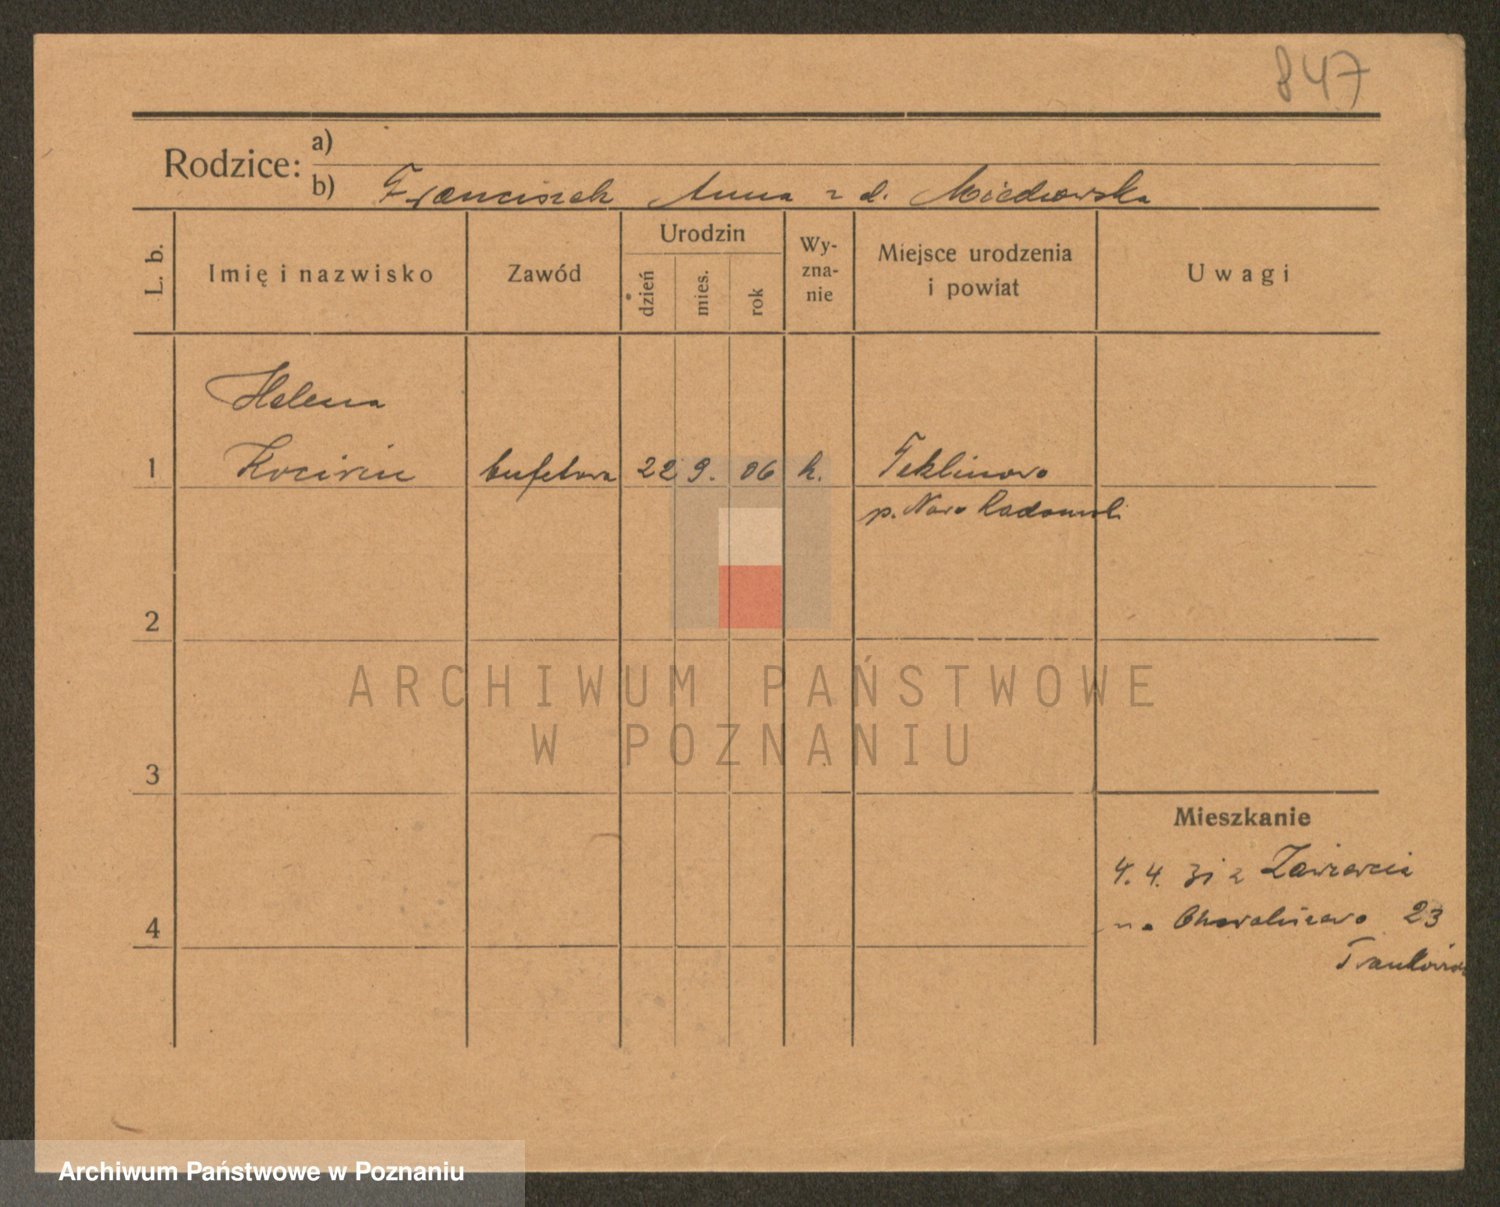 847
Rodzice:
a)
b) Franciszek Anna z d. Miedrowska
L. b.
Imię i nazwisko
Zawód
Urodzin
dzień
mies.
rok
Wy-
zna-
nie
Miejsce urodzenia
i powiat
Uwagi
Helena
1 bufetowa 22 9. 06 k. Teklinowo
p. Nowo Radomsk
2
3
4
Mieszkanie
4. 4. 31 z Zawiercia
na Chwaliszewo 23
ARCHIWUM PAŃSTWOWE
W POZNANIU
Archiwum Państwowe w Poznaniu